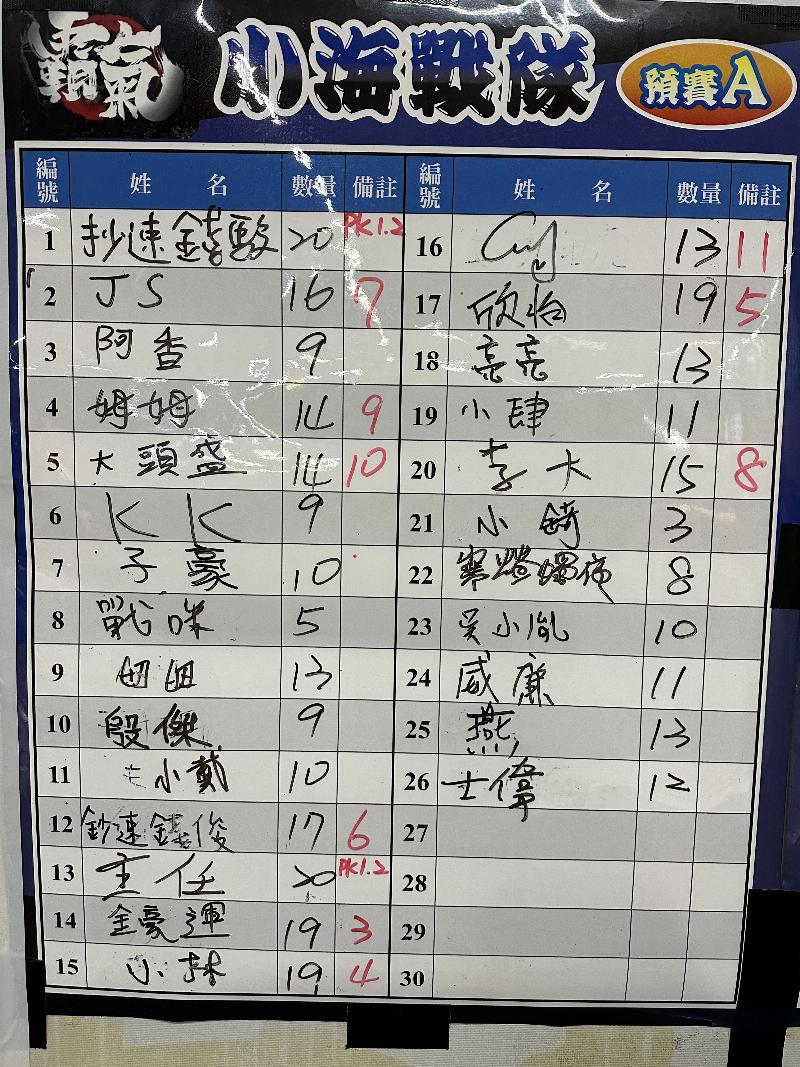 霸氣 小海戰隊 預賽A
編號 姓名 數量 備註
1 抄速錢 20 PK1.2
2 JS 16 7
3 阿香 9
4 姆姆 14 9
5 大頭盛 14 10
6 KK 9
7 子豪 10
8 戰咪 5
9 妞妞 13
10 殷傑 9
11 小戴 10
12 鈔速錢俊 17 6
13 主任 20 PK1.2
14 金豪運 19 3
15 小林 19 4
編號 姓名 數量 備註
16 13 11
17 欣怡 19 5
18 亮亮 13
19 小肆 11
20 李大 15 8
21 小錡 3
22 8
23 吳小胤 10
24 威廉 11
25 燕 13
26 士偉 12
27
28
29
30